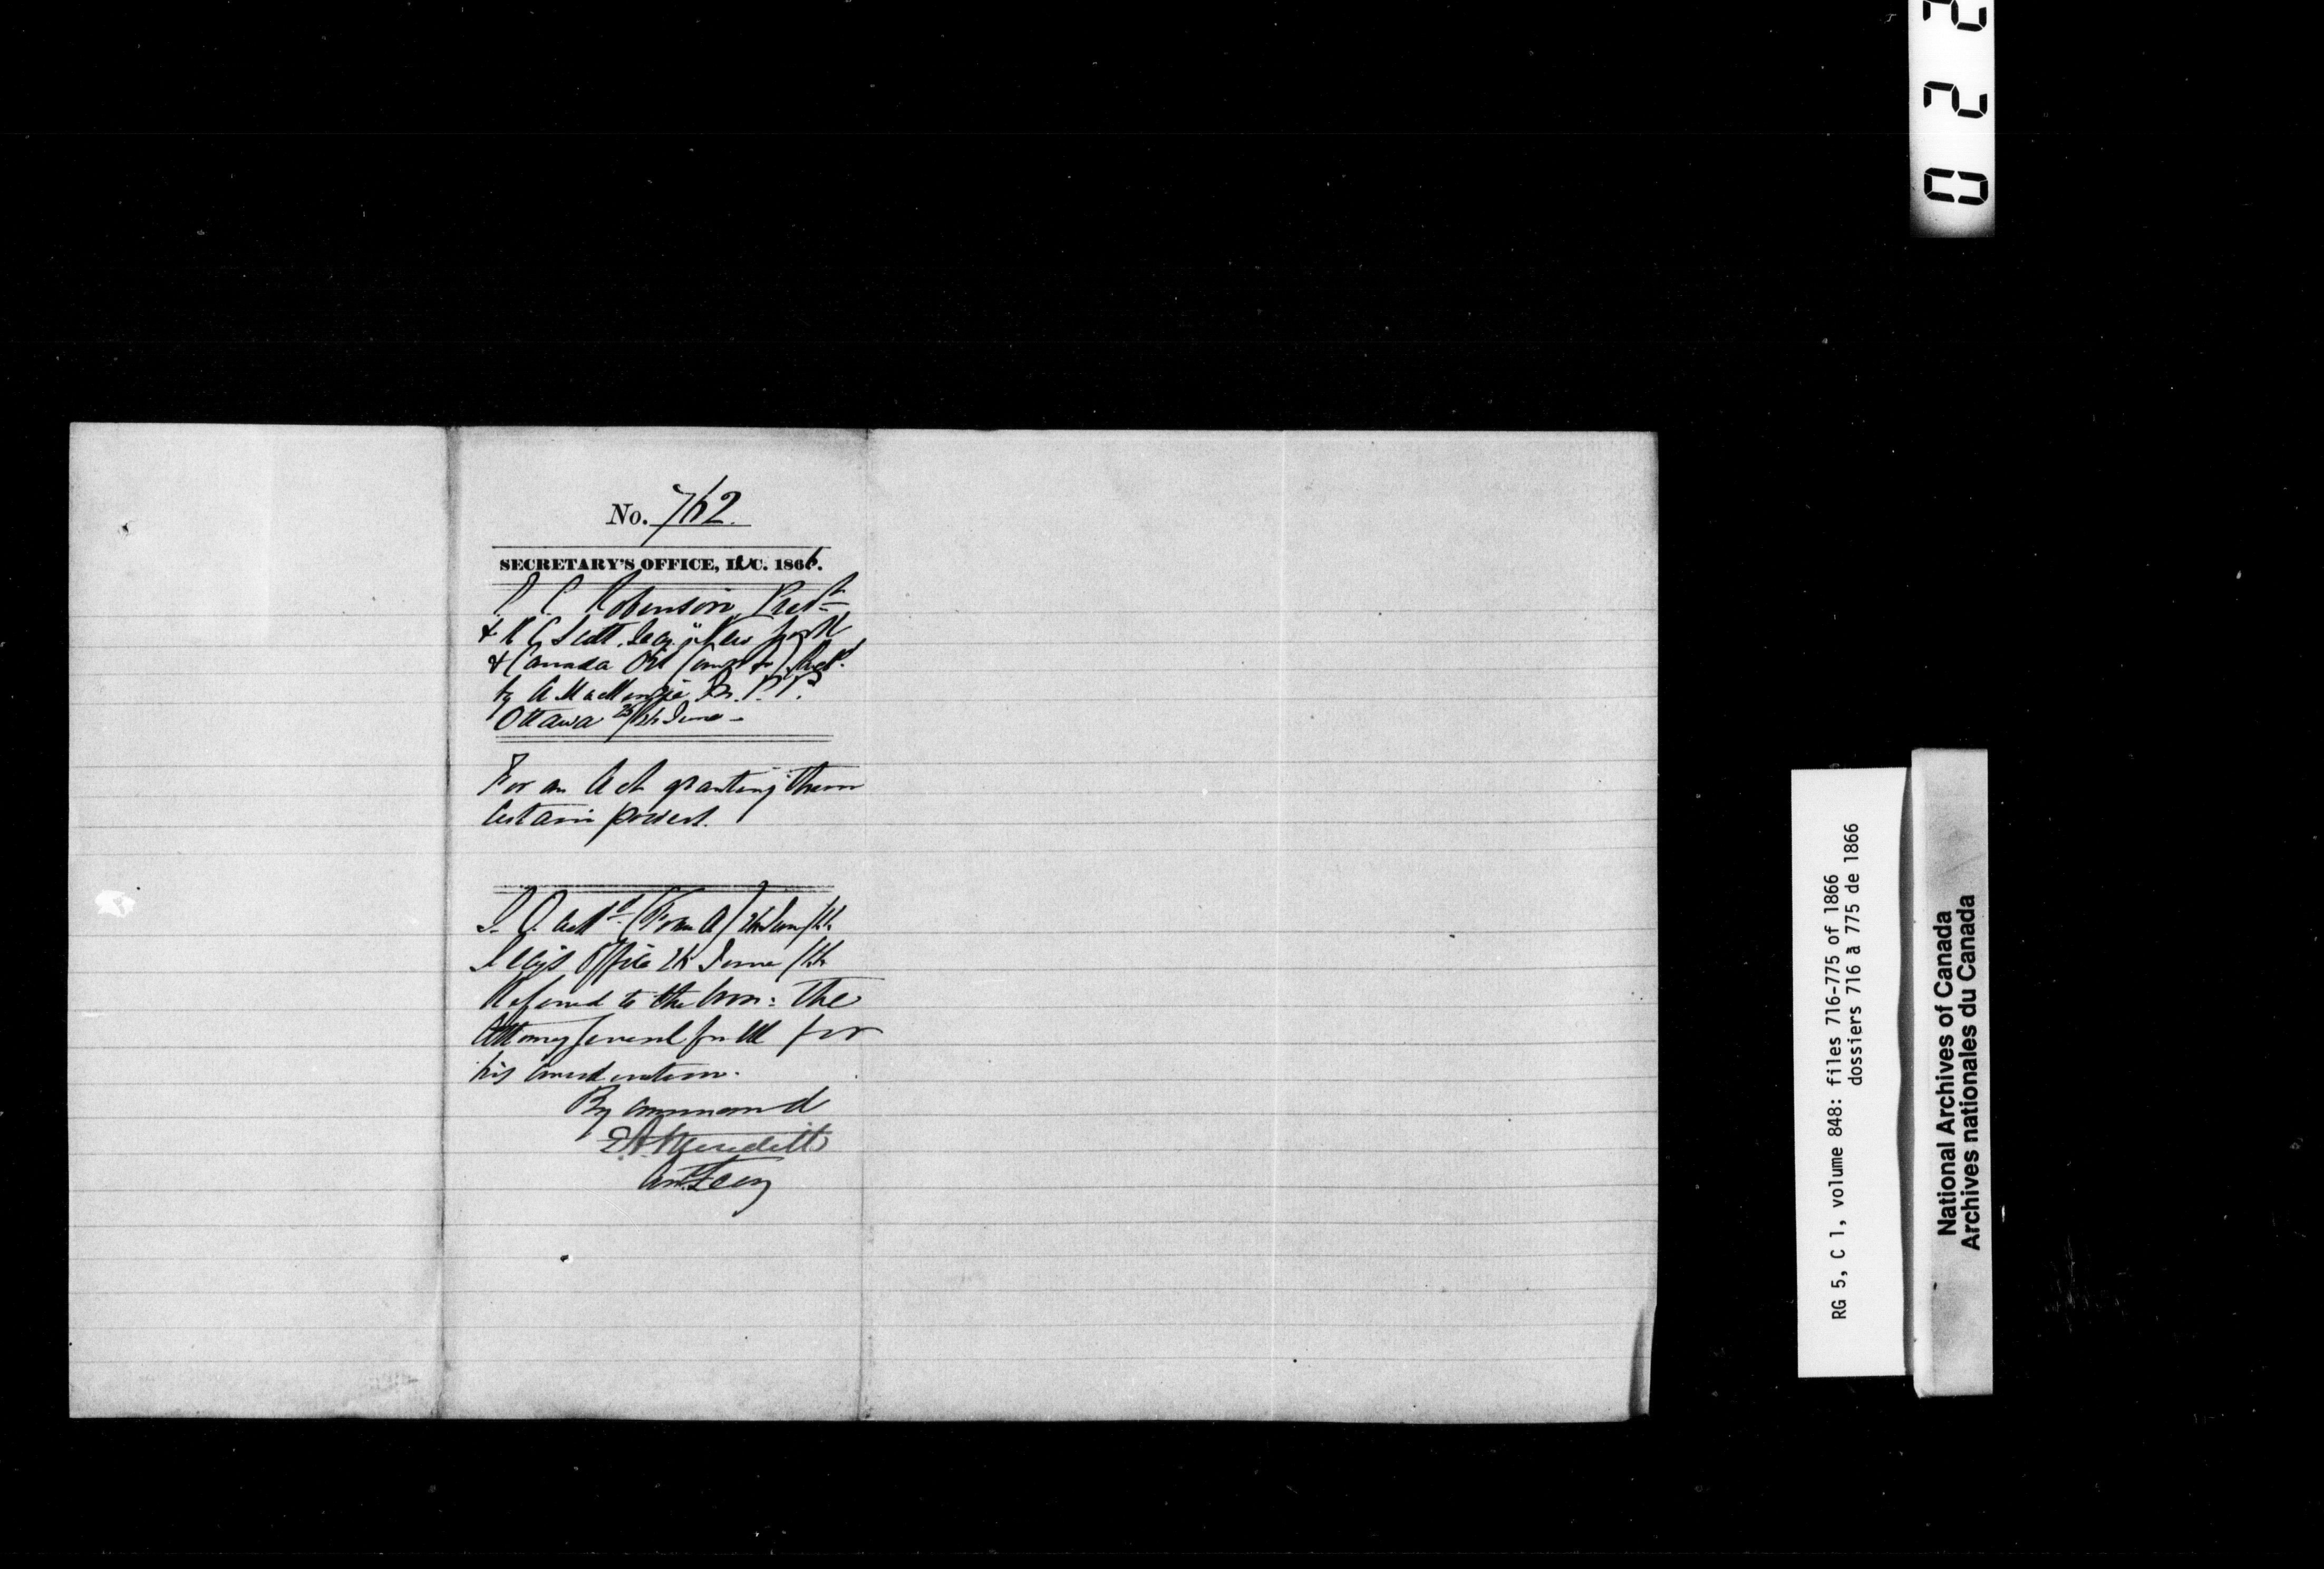 No. 762.
SECRETARY'S OFFICE, C. 1866.
Robinson, Presdt
& R G Scott, Secy "New York
& Canada Oil Compy"
by A MacKenzie M. P. P.
Ottawa 25/26 June -
For an Act granting them
Certain powers.
(Form A) 26 June/66
Secy's Office 26 June /66
Referred to the Hon: The
Attorney General for UC for
his consideration.
By command
E A Meredith
Asst Secy
022
RG 5, C 1, volume 848: files 716-775 of 1866
dossiers 716 à 775 de 1866
National Archives of Canada
Archives nationales du Canada